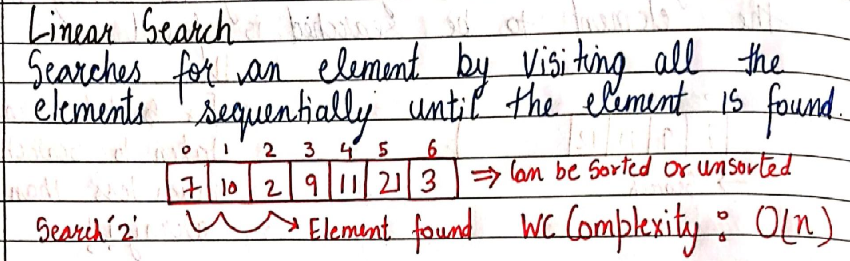 Linear Search
Searches for an element by visiting all the
elements sequentially until the element is found.
0 1 2 3 4 5 6
7 10 2 9 11 21 3 ⇒ Can be sorted or unsorted
Search '2' → Element found WC Complexity : O(n)